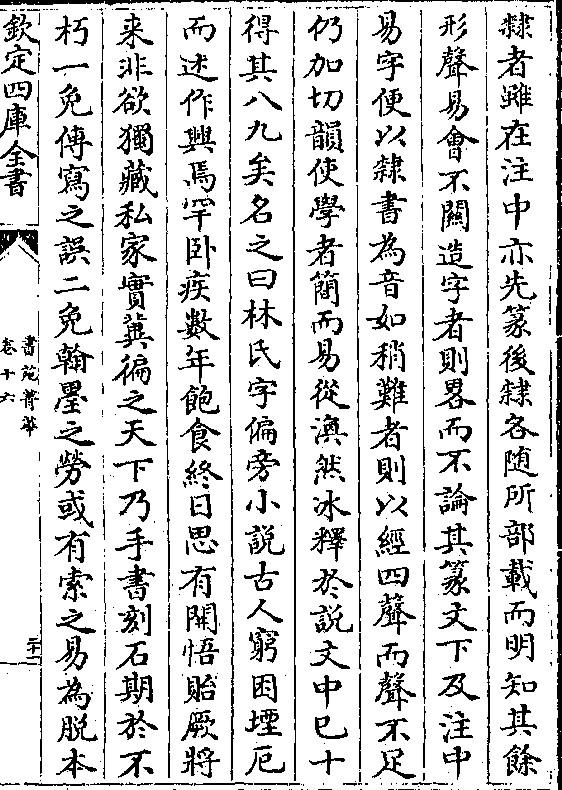 隸者雖在注中亦先篆後隸各随所部載而明知其餘
形聲易會不闗造字者則畧而不論其篆文下及注中
易字便以隸書為音如稍難者則以經四聲而聲不足
仍加切韻使學者簡而易從渙然冰釋於說文中已十
得其八九矣名之曰林氏字偏旁小說古人窮困堙厄
而述作興焉罕卧疾數年飽食終日思有開悟貽厥將
来非欲獨藏私家實冀徧之天下乃手書刻石期於不
朽一免傳寫之誤二免翰墨之勞或有索之易為脱本
欽定四庫全書
書苑菁華
卷十六